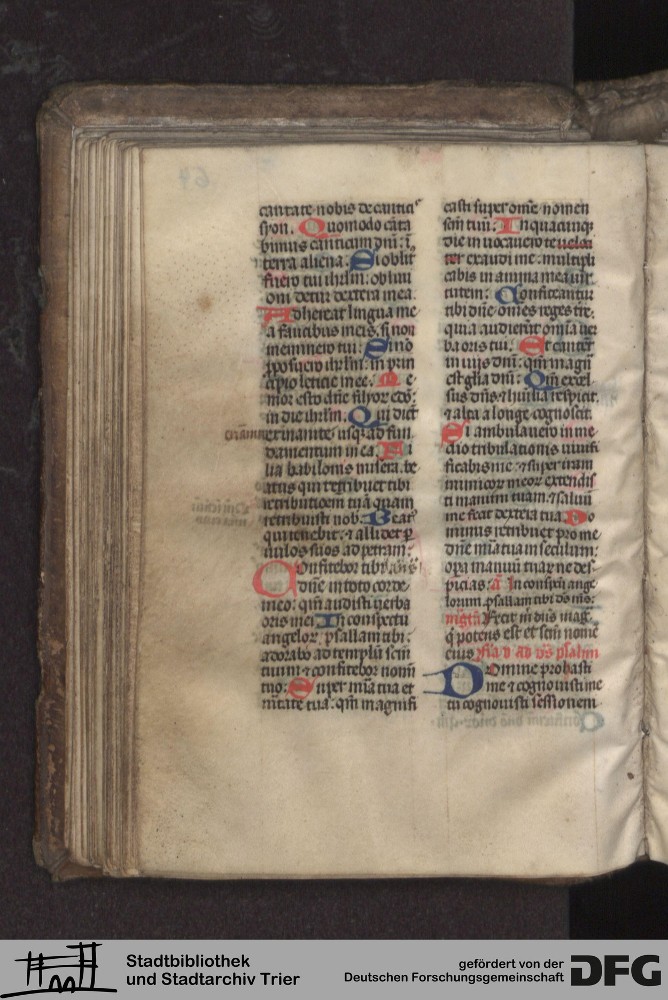 cantate nobis de cantic
syon. Quomodo cāta
bimus canticum dnī: ī
terra aliena. Si oblit
fuero tui ihrlm: oblivi
oni detur dextera mea.
Adhereat lingua me
a faucibus meis. si non
meminero tui: Si nō
pposuero ihrlm: in prin
cipio leticie mee. Me
mor esto dne filiorꝫ edō:
in die ihrlm. Qui dicūt
exinanite. usqꝫ ad fun
damentum in ea. Fi
lia babilonis misera. be
atus qui retribuet tibi
retributionem tuā quam
retribuisti nob. Beat
qui tenebit: et allidet p
uulos suos ad petram:
Confitebor tibi
dne in toto corde
meo: qm audisti uerba
oris mei. In conspectu
angelor psallam tibi:
adorabo ad templū scm
tuum et confitebor nomi
tuo: Super mīa tua et
uitate tua: qm magnifi
casti super ome nomen
scm tuū: In quacunqꝫ
die inuocauero te uelocī
ter exaudi me: multipli
cabis in anima mea uir
tutem: Confiteantur
tibi dne omēs reges tre:
quia audierūt omīa uer
ba oris tui: Et cantēt
in uiis dnī: qm magnā
est glia dnī: Qm excel
sus dns et humilia respicit.
et alta a longe cognoscit.
Si ambulauero in me
dio tribulationis uiuifi
ficabis me: et super iram
inimicor meor extendis
ti manum tuam. et saluū
me fecit dextera tua. Do
minus retribuet pro me
dne mīa tua in seculum:
opa manuū tuar ne des
picias: a In conspcū ange
lorum. psallam tibi ds ms:
Fecit in dnīs mag
q potens est et scm nomē
eius
Domine probasti
me et cognouisti me
tu cognouisti sessionem
Stadtbibliothek
und Stadtarchiv Trier
gefördert von der
Deutschen Forschungsgemeinschaft DFG